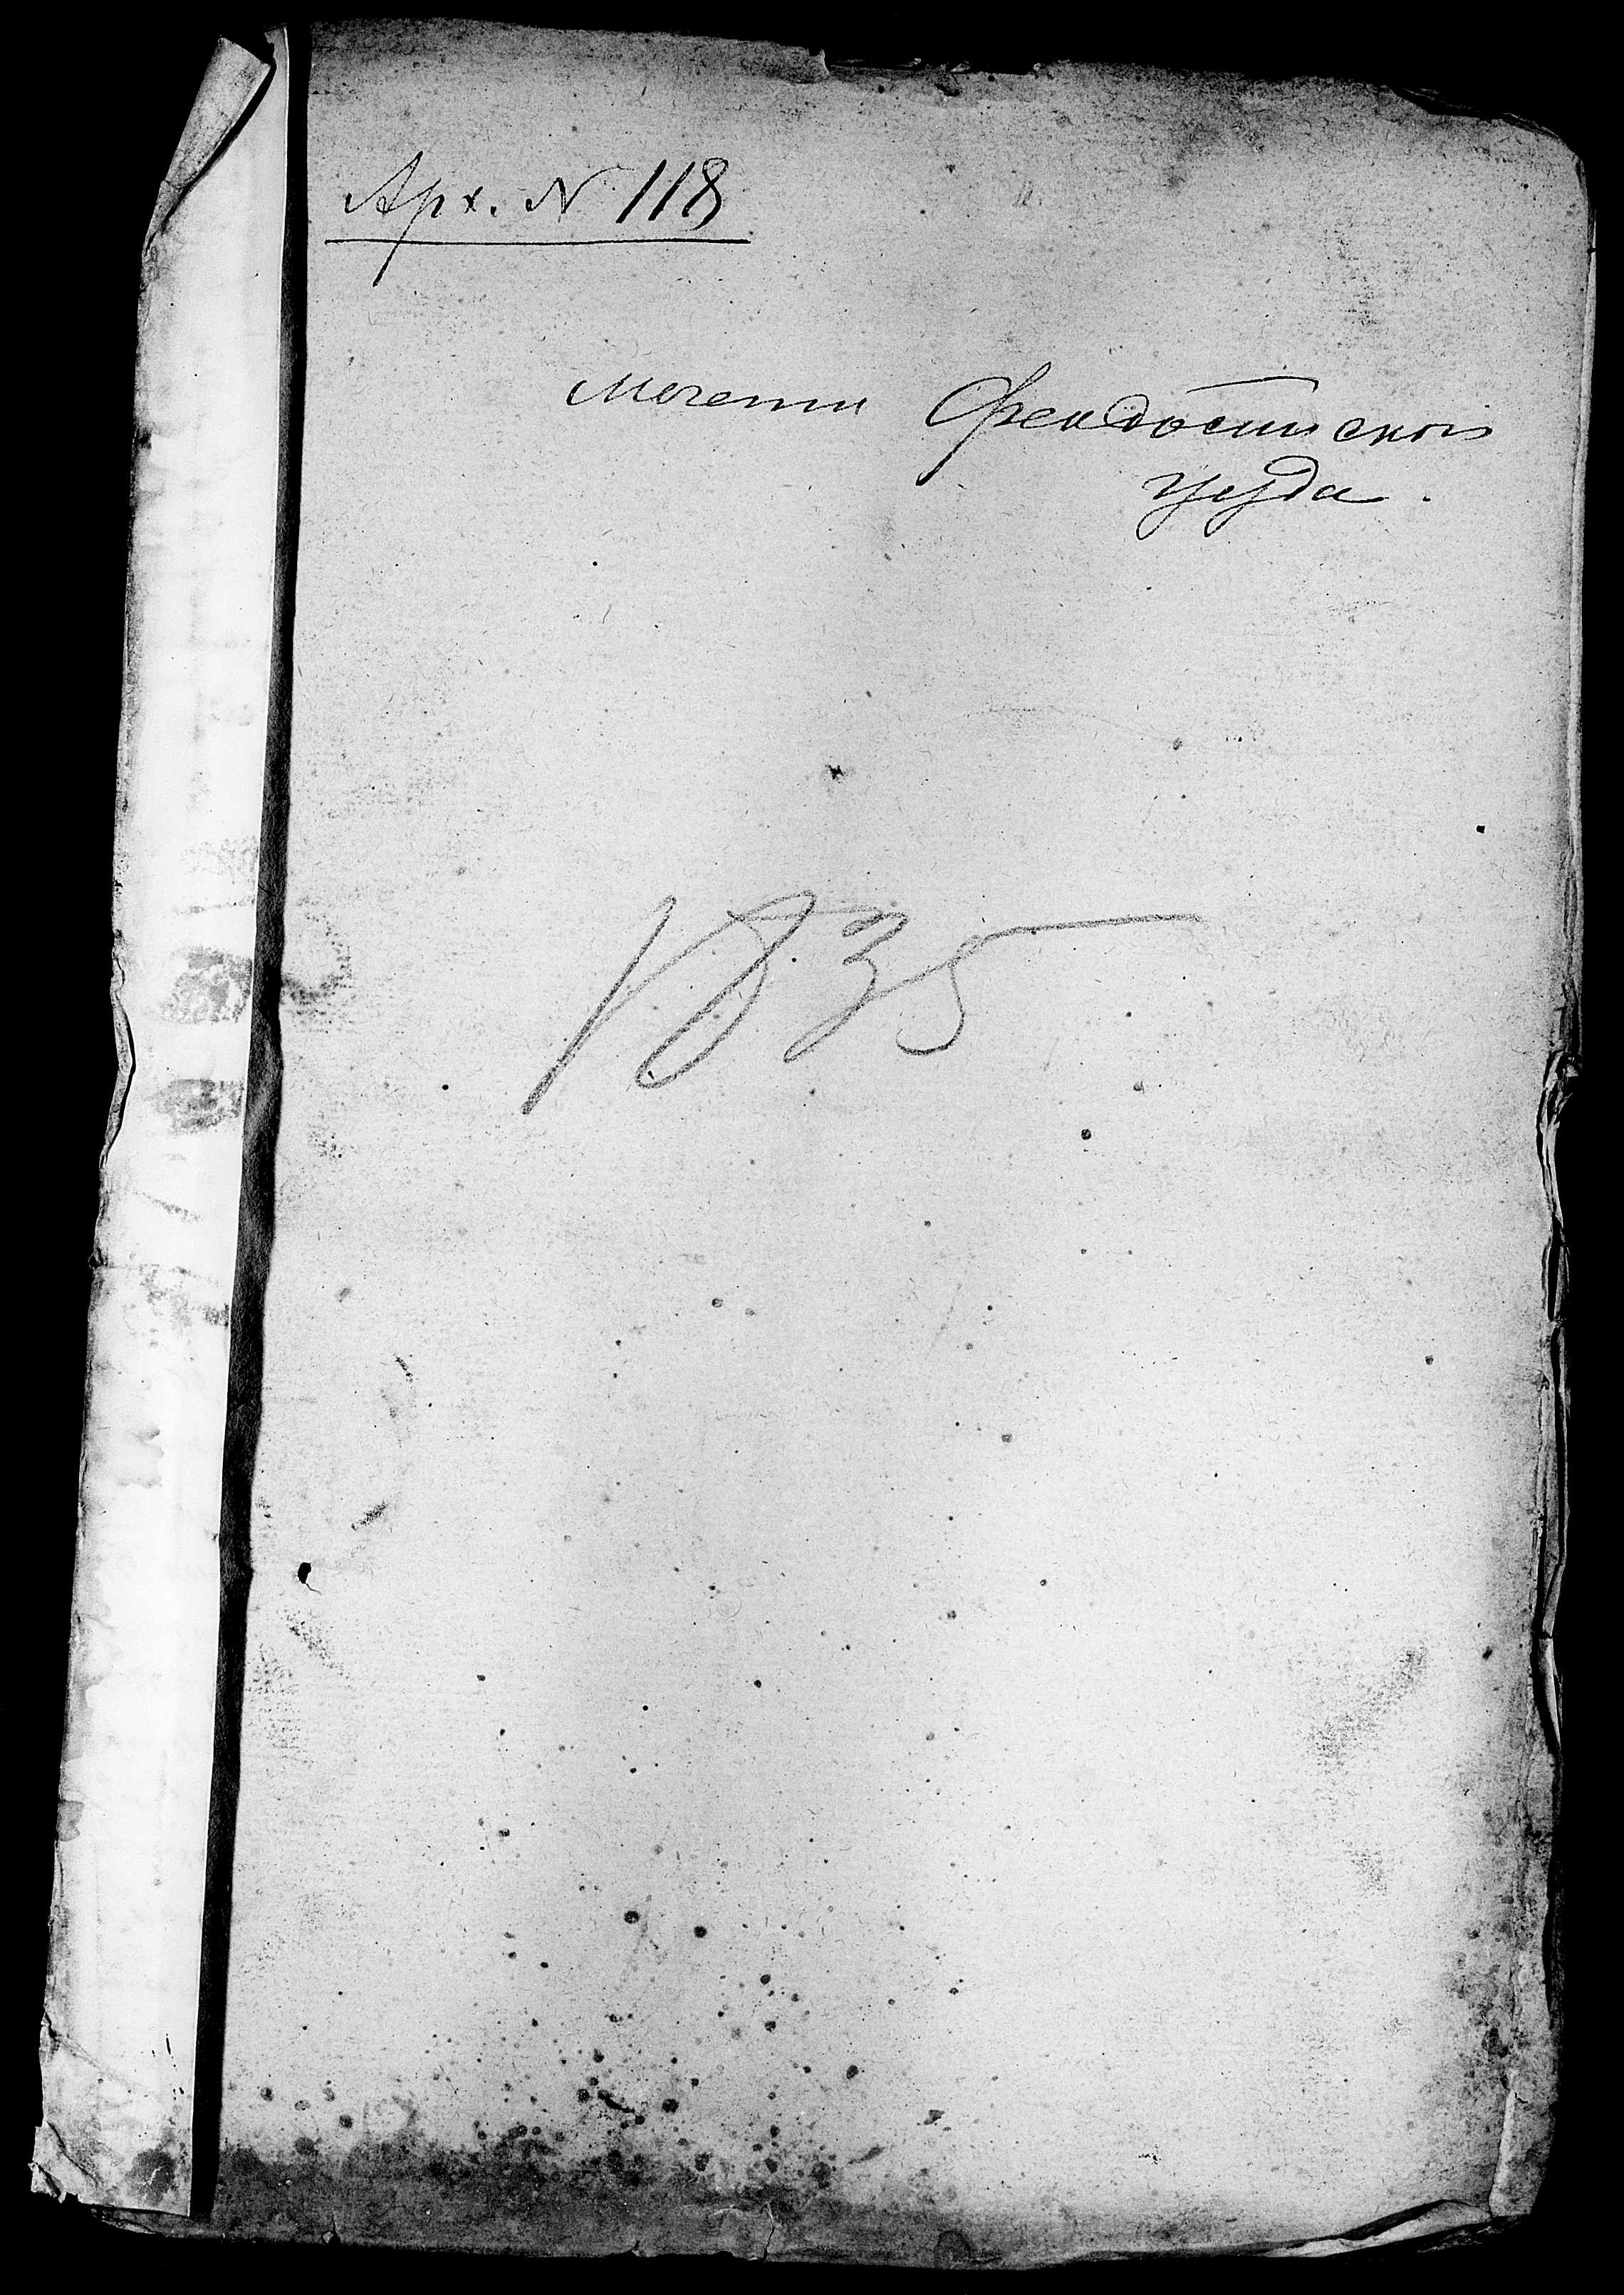 Арх. № 118
Мечети Феодосийскаго
уезда.
1835